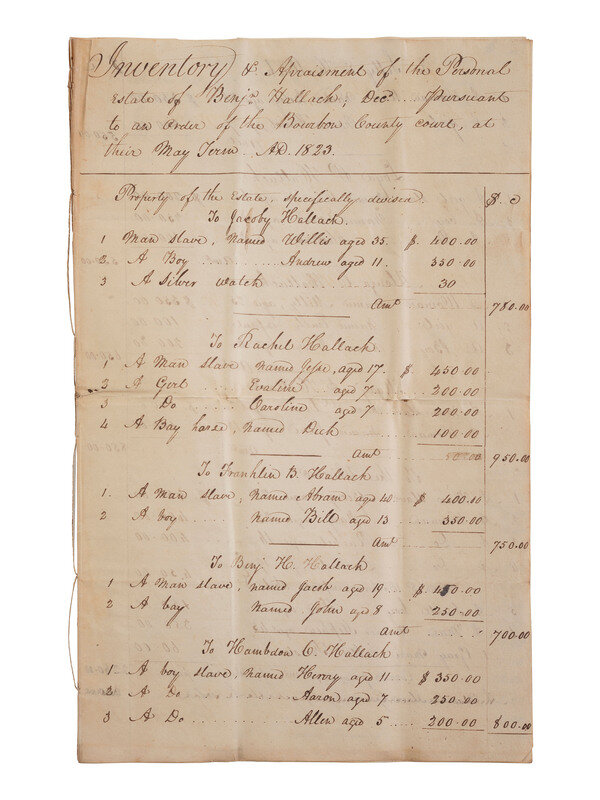 Inventory & Apraisment of the Personal
Estate of Benjn. Hallack; Decd. Pursuant
to an Order of the Bourbon County court, at
their May Term. AD. 1823.
Property of the Estate, specifically devised. $. c
To Jacoby Hallack.
1 Man slave, named Willis aged 35. $. 400.00
2 A Boy Andrew aged 11. 350.00
3 A Silver watch 30
Amt 780.00
To Rachel Hallack.
1 A Man slave named Jesse, aged 17. $ 450.00
2 A Gerl .... Evaline aged 7 .... 200.00
3 Do Caroline aged 7 .... 200.00
4 A Bay horse, named Dick 100.00
Amt 950.00
To Franklin B. Hallack
1. A Man slave, named Abram aged 40. $ 400.00
2 A boy ..... named Bill aged 13 ... 350.00
Amt 750.00
To Benj. H. Hallack
1 A Man slave, named Jacob aged 19 .. $. 450.00
2 A boy named John aged 8 250.00
Amt 700.00
To Hambdon C. Hallack
1. A boy slave, named Henry aged 11 .... $ 350.00
2 A Do Aaron aged 7 .... 250.00
3 A Do ......... Allen aged 5 .... 200.00 $ 800.00